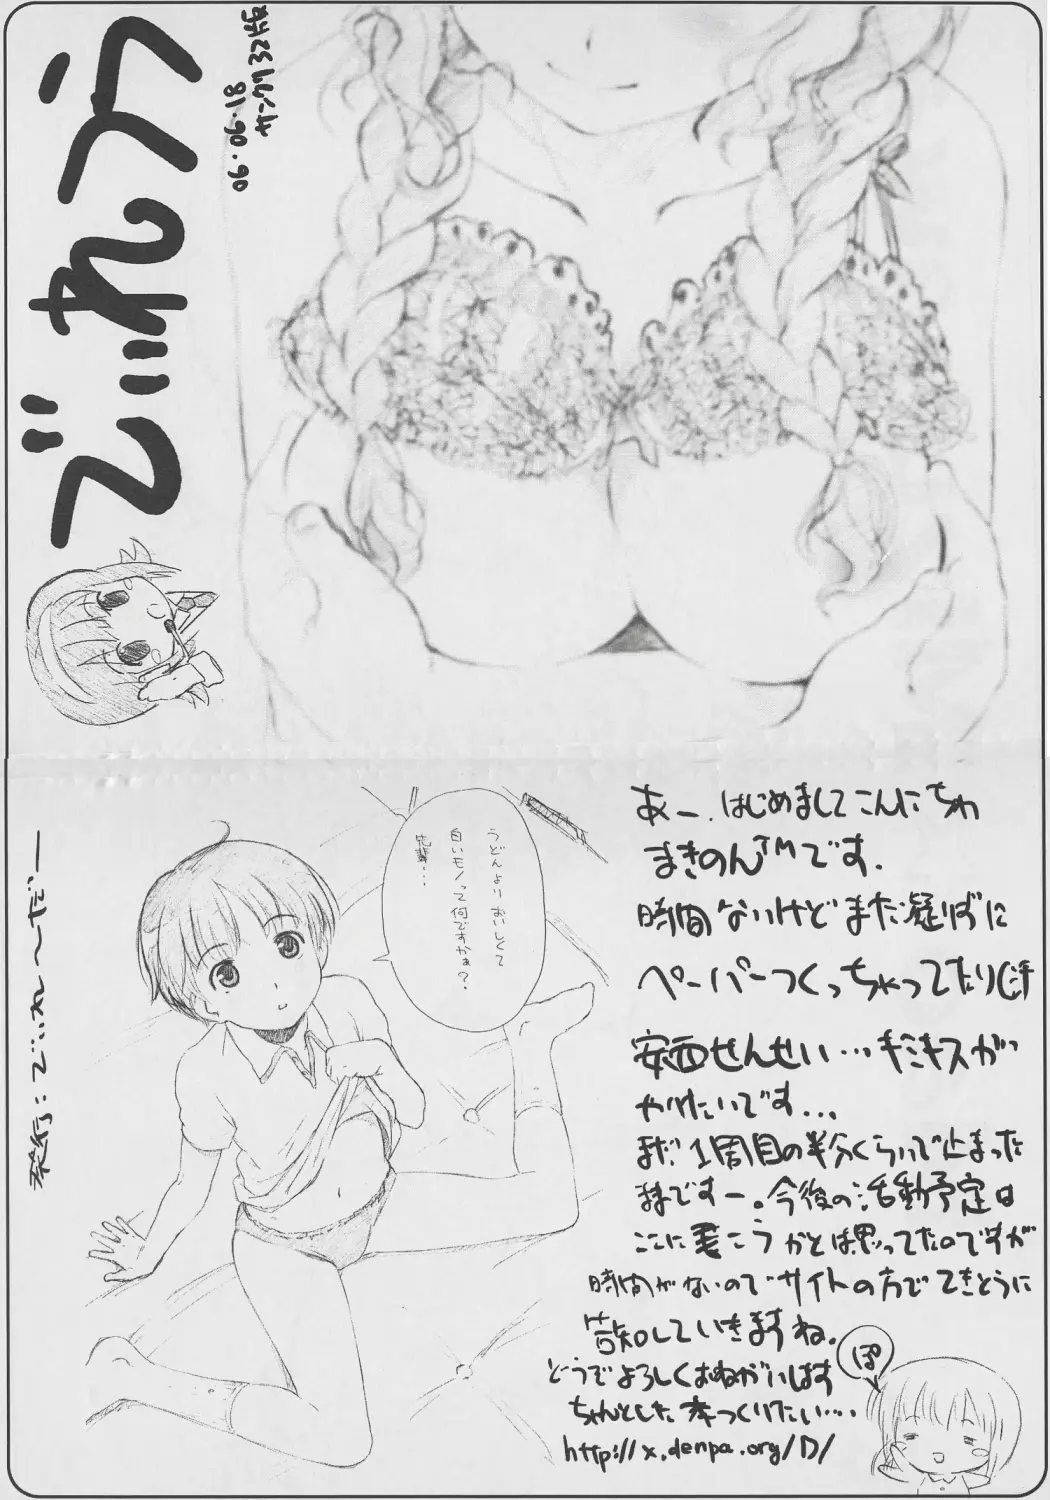 でいれう
06.06.18
サンクリ32版
うどんよりおいしくて
白いモノって何ですかぁ？
先輩…
発行：でぃれ〜だー
あー、はじめましてこんにちわ
まきのん™です.
時間ないけどまた凝りずに
ペーパーつくっちゃってたり(汗
安西せんせい…キミキスが
やりたいです...
まだ1周目の半分くらいで止まった
ままですー。今後の活動予定は
ここに書こうかとは思ってたのですが
時間がないのでサイトの方でてきとうに
告知していきますね.
どうぞよろしくおねがいします
ちゃんとした本つくりたい....
http://x.denpa.org/D/
ぽ